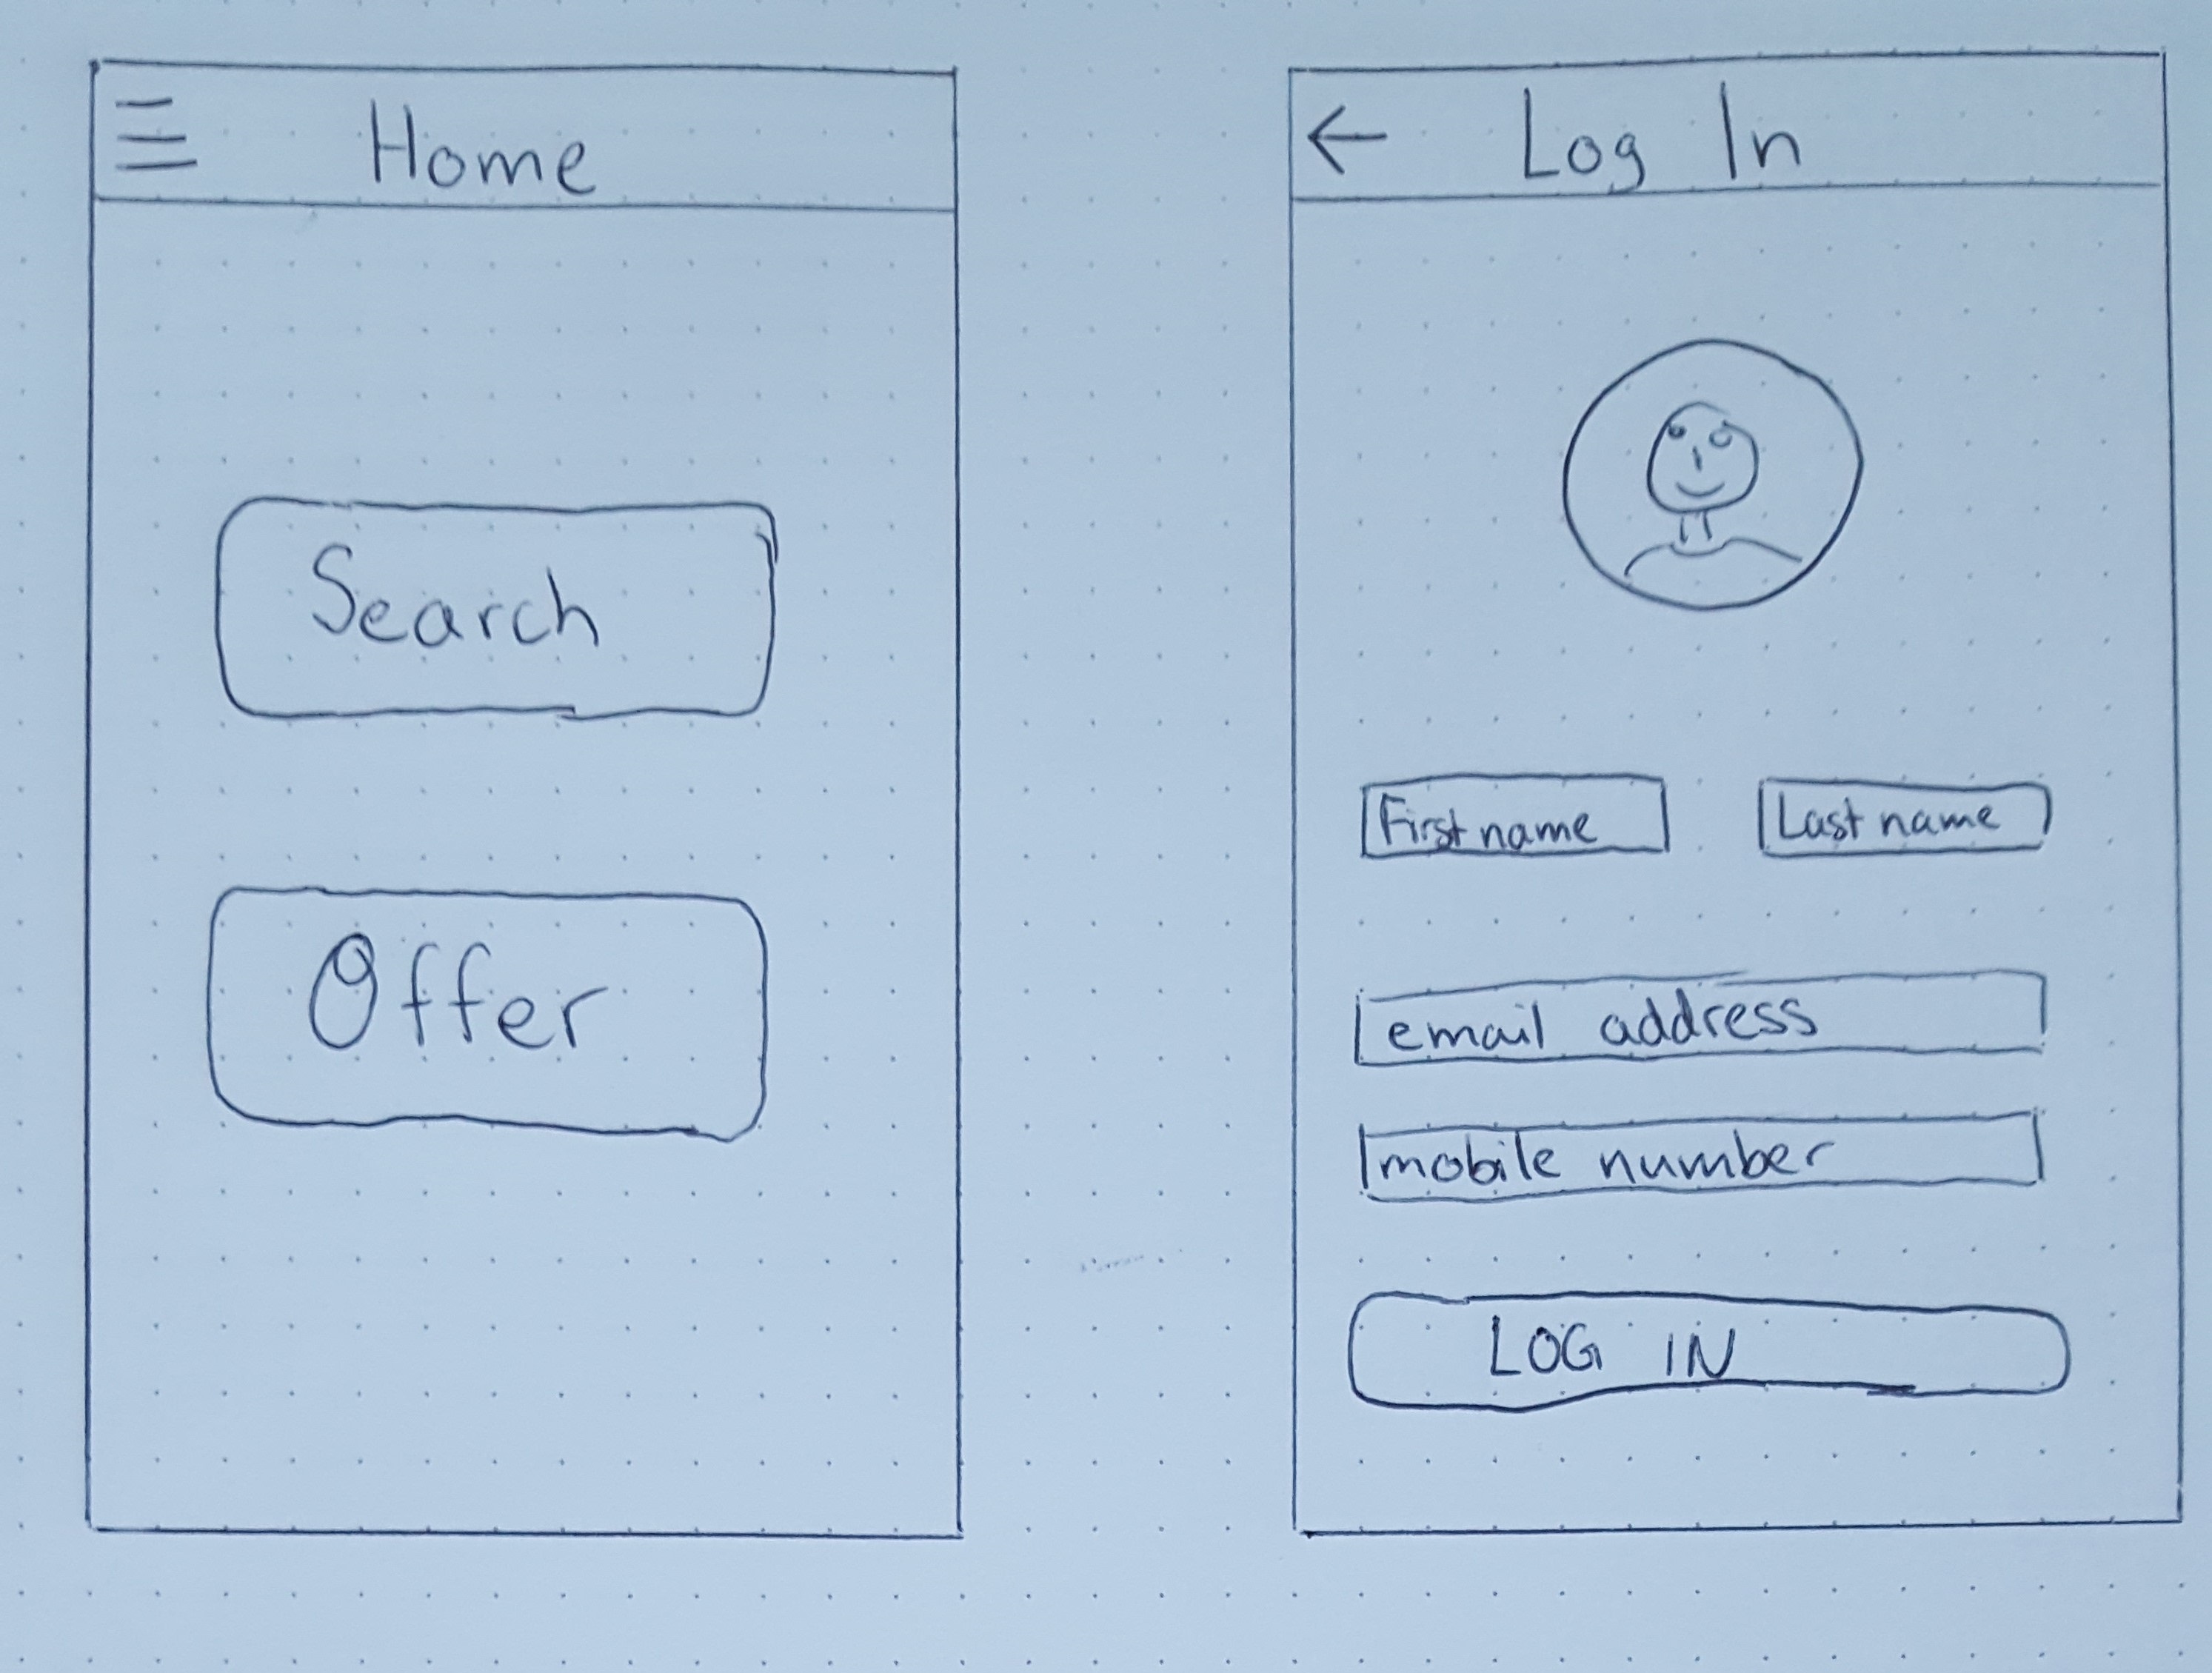 Home
Search
Offer
Log In
First name
Last name
email address
mobile number
LOG IN